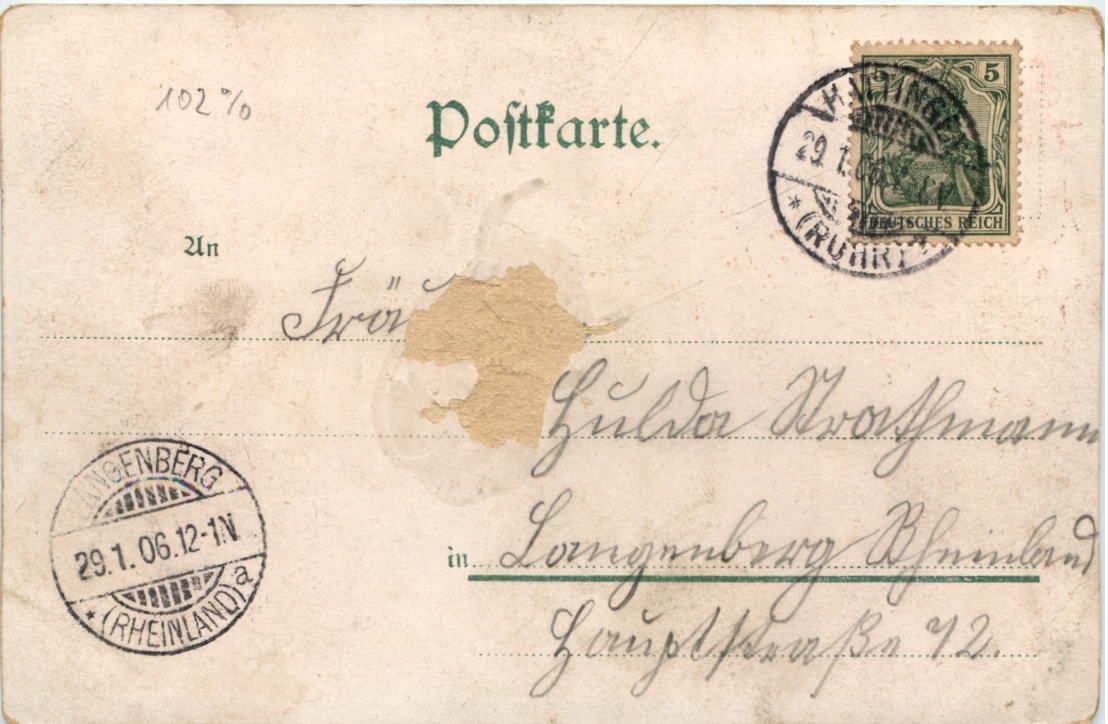 102%
Postkarte.
5
DEUTSCHES REICH
HATTINGEN
29.1.06
* (RUHR)
An
Frä
Hulda Strathmann
in Langenberg Rheinland
Hauptstraße 12.
LANGENBERG
29.1.06.12-1N.
* (RHEINLAND) a